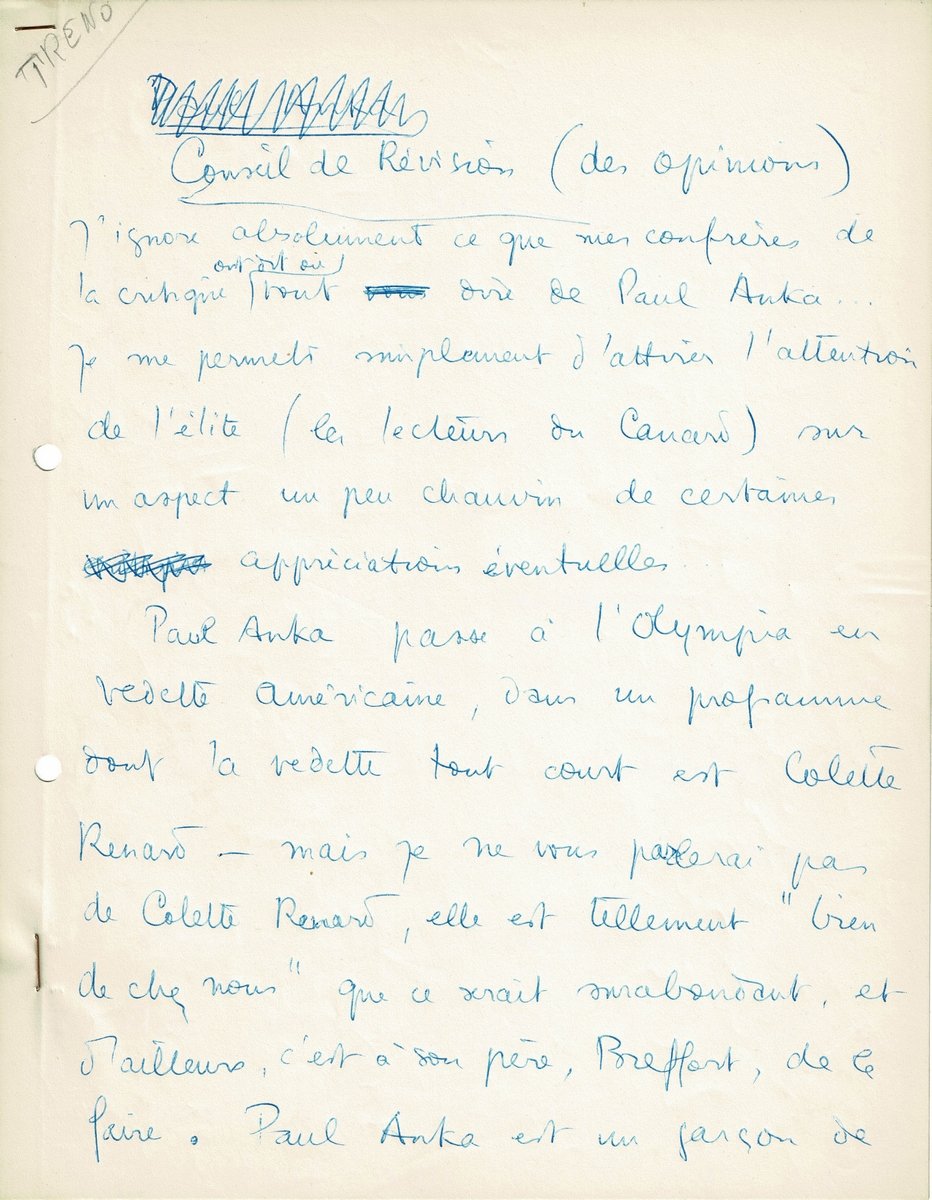 TRENO
Conseil de Révision (des opinions)
J'ignore absolument ce que mes confrères de
ont dit ou
la critique vont dire de Paul Anka...
Je me permets simplement d'attirer l'attention
de l'élite (les lecteurs du Canard) sur
un aspect un peu chauvin de certaines
appréciations éventuelles.
Paul Anka passe à l'Olympia en
vedette américaine, dans un programme
dont la vedette tout court est Colette
Renard – mais je ne vous parlerai pas
de Colette Renard, elle est tellement "bien
de chez nous" que ce serait surabondant, et
d'ailleurs, c'est à son père, Breffort, de le
faire. Paul Anka est un garçon de